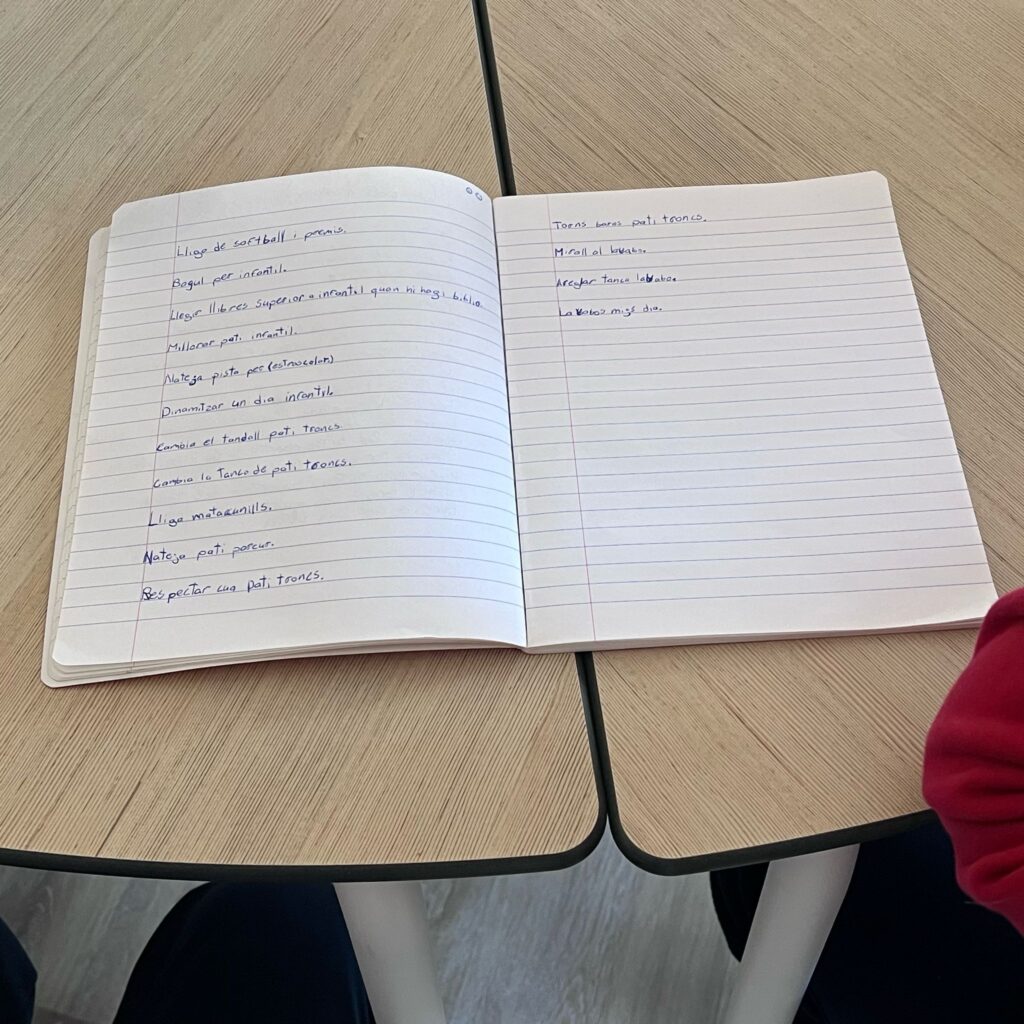 Lliga de softball i premis.
Bagul per infantil.
Llegir llibres Superior a infantil quan hi hagi biblio.
Millorar pati infantil.
Nateja pista per (estnocolor)
Dinamitzar un dia infantil.
Cambia el tandall pati troncs
Cambia la Tanca de pati troncs.
Lliga matacunills.
Nateja pati porcur.
Respectar cua pati troncs.
Torns bares pati troncs.
Mirall al lavabo.
Arreglar tanca lavabo.
Lavabos migs dia.